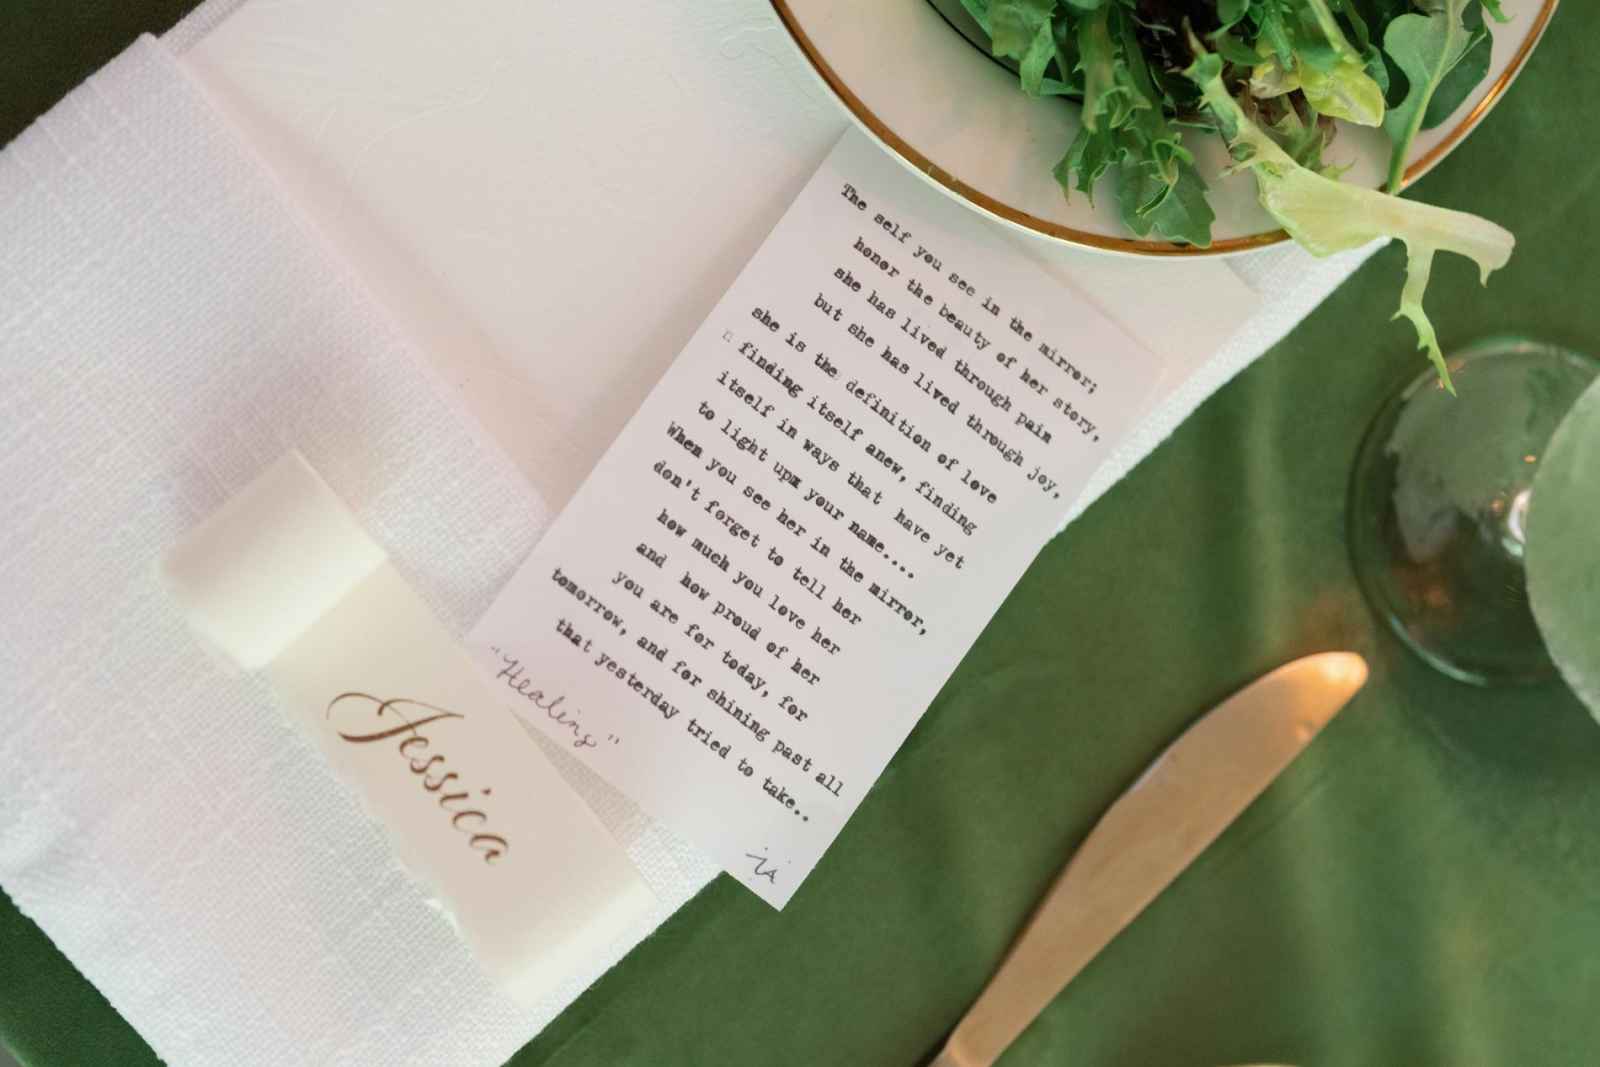 The self you see in the mirror;
honor the beauty of her story,
she has lived through pain
but she has lived through joy,
she is the definition of love
n finding itself anew, finding
itself in ways that have yet
to light upm your name....
When you see her in the mirror,
don't forget to tell her
how much you love her
and how proud of her
you are for today, for
tomorrow, and for shining past all
that yesterday tried to take..
"Healing"
Jessica